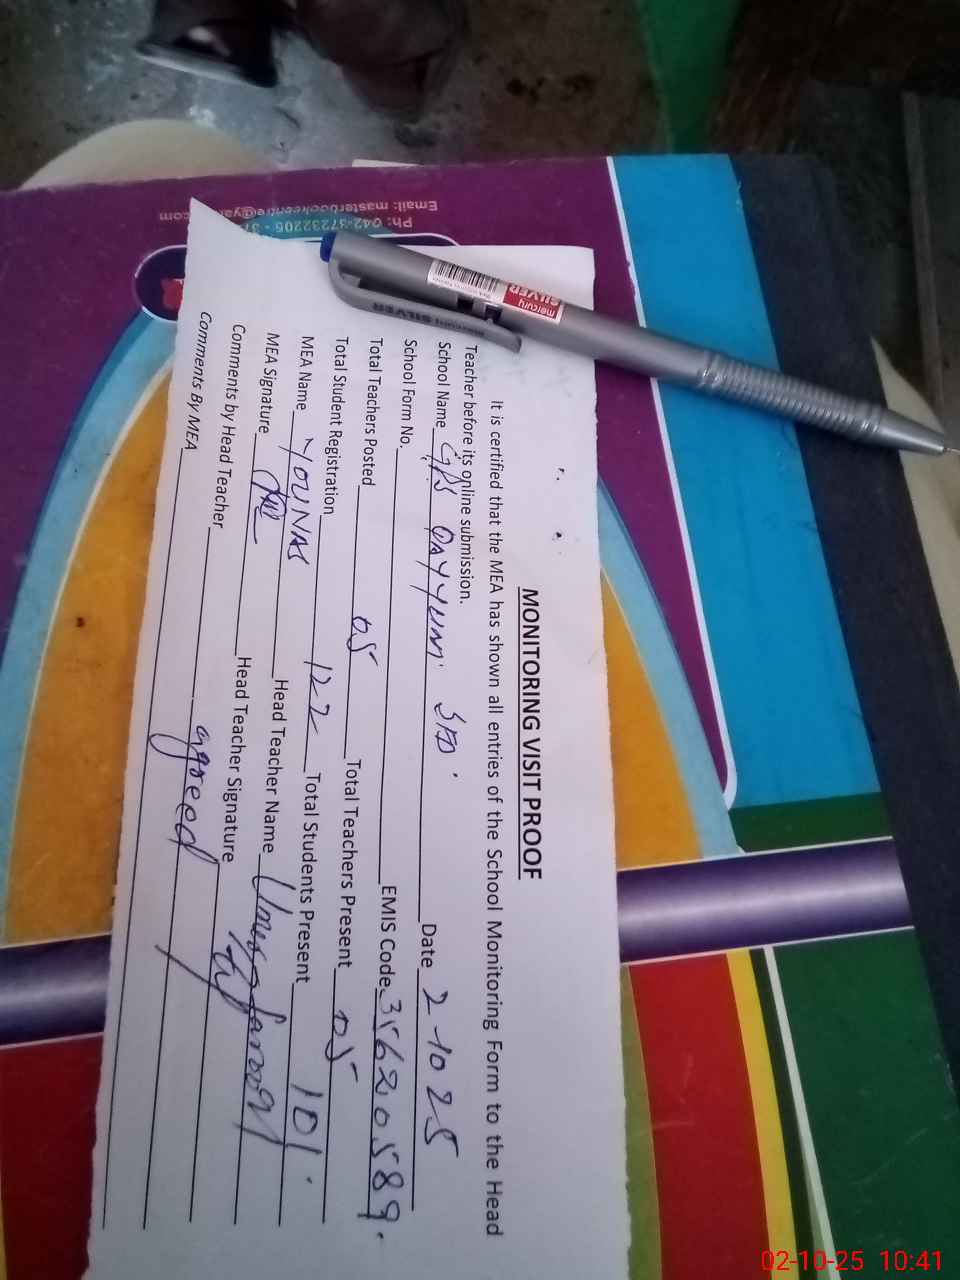 MONITORING VISIT PROOF
It is certified that the MEA has shown all entries of the School Monitoring Form to the Head
Teacher before its online submission.
School Name GPS QAYYUM Date 2-10 25
School Form No. EMIS Code 35620589.
Total Teachers Posted 05 Total Teachers Present 05
Total Student Registration 122 Total Students Present 101.
MEA Name YOUNAS Head Teacher Name Umer farooq
MEA Signature Head Teacher Signature
Comments by Head Teacher agreed
Comments By MEA
mercury SILVER
mercury SILVER
Ph: 042-37232205 - 37
Email: masterbookcentre@ya .com
02-10-25 10:41